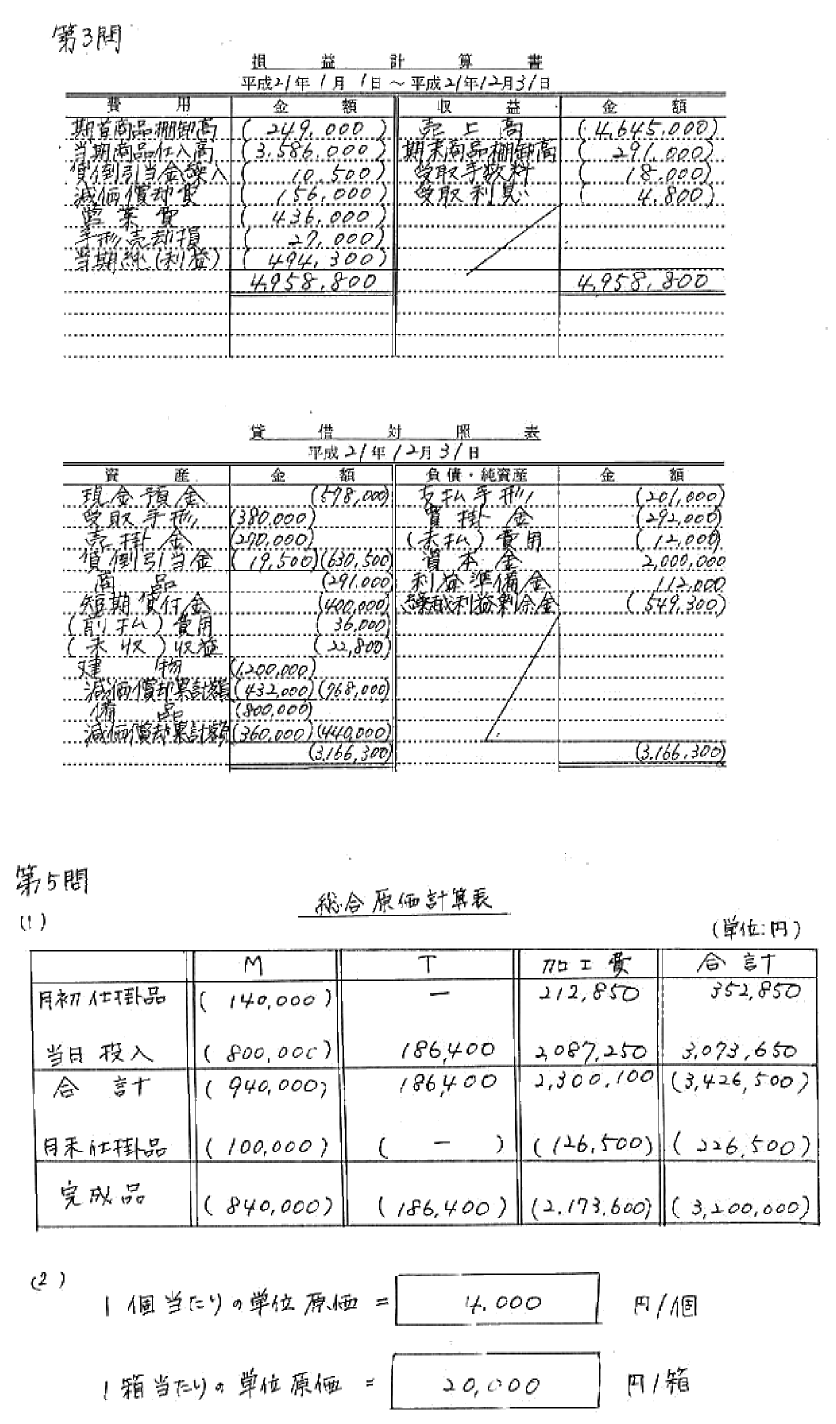 第3問
損益計算書
平成21年1月1日～平成21年12月31日
費用 金額 収益 金額
期首商品棚卸高 (249,000) 売上高 (4,645,000)
当期商品仕入高 (3,586,000) 期末商品棚卸高 (291,000)
貸倒引当金繰入 (10,500) 受取手数料 (18,000)
減価償却費 (156,000) 受取利息 (4,800)
営業費 (436,000)
手形売却損 (27,000)
当期純(利益) (494,300)
4,958,800 4,958,800
貸借対照表
平成21年12月31日
資産 金額 負債・純資産 金額
現金預金 (598,000) 支払手形 (201,000)
受取手形 (380,000) 買掛金 (292,000)
売掛金 (270,000) (未払)費用 (12,000)
貸倒引当金 (19,500) (630,500) 資本金 2,000,000
商品 (291,000) 利益準備金 112,000
短期貸付金 (400,000) 繰越利益剰余金 (549,300)
(前払)費用 (36,000)
(未収)収益 (22,800)
建物 (1,200,000)
減価償却累計額 (432,000) (768,000)
備品 (800,000)
減価償却累計額 (360,000) (440,000)
(3,166,300) (3,166,300)
第5問
(1)
総合原価計算表
(単位:円)
M T 加工費 合計
月初仕掛品 (140,000) ー 212,850 352,850
当月投入 (800,000) 186,400 2,087,250 3,073,650
合計 (940,000) 186,400 2,300,100 (3,426,500)
月末仕掛品 (100,000) (ー) (126,500) (226,500)
完成品 (840,000) (186,400) (2,173,600) (3,200,000)
(2)
1個当たりの単位原価 = 4,000 円/個
1箱当たりの単位原価 = 20,000 円/箱